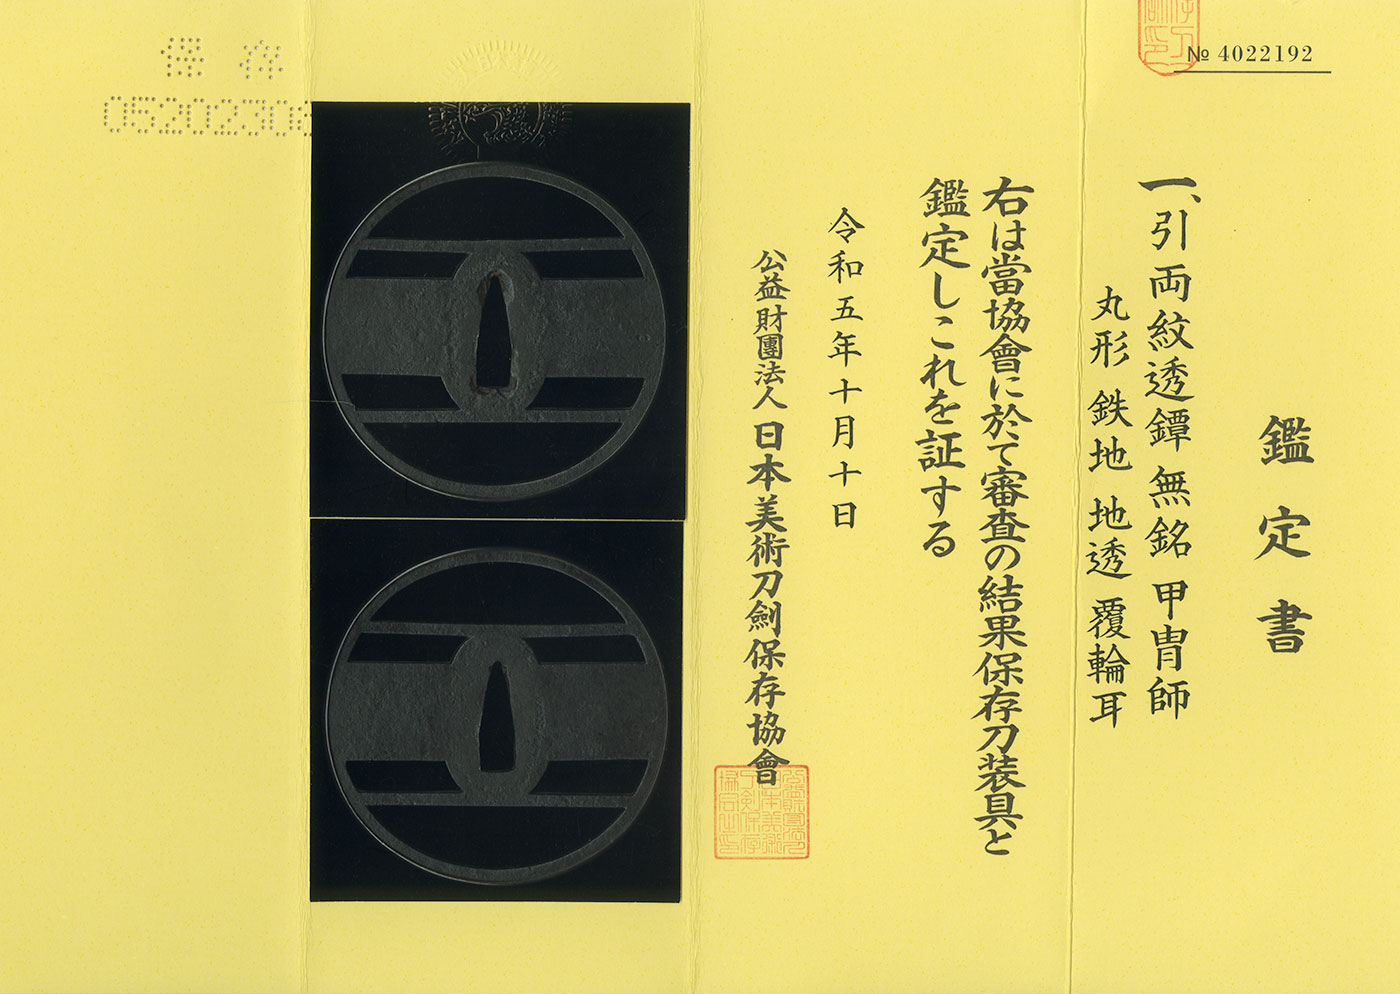 № 4022192
鑑定書
一、引両紋透鐔 無銘 甲冑師
丸形 鉄地 地透 覆輪耳
右は當協會に於て審査の結果保存刀装具と
鑑定しこれを証する
令和五年十月十日
公益財團法人 日本美術刀劍保存協會
保存